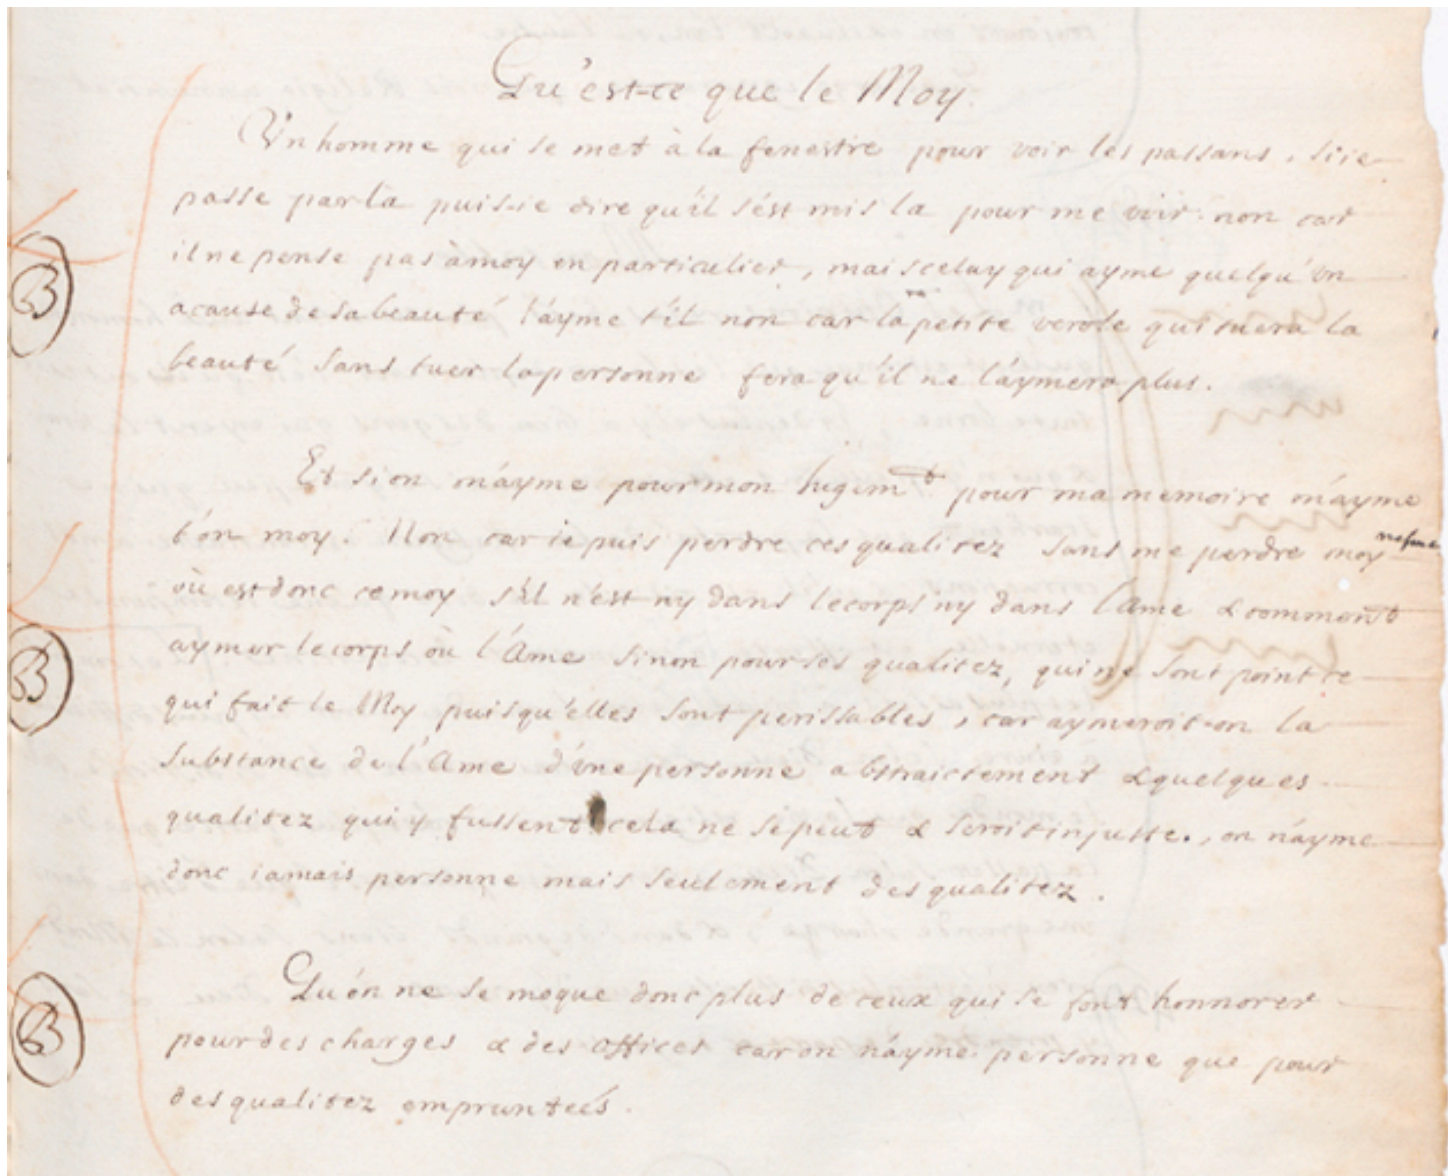 Qu'est-ce que le Moy.
Vn homme qui se met à la fenestre pour voir les passans, si ie
passe par la puis-ie dire qu'il s'est mis la pour me voir. non car
il ne pense pas à moy en particulier, mais celuy qui ayme quelqu'vn
a cause de sa beauté l'ayme t'il non car la petite verole qui tuera la
beauté sans tuer la personne fera qu'il ne l'aymera plus.
Et si on m'ayme pour mon Iugem.t pour ma memoire m'ayme
t'on moy. Non car ie puis perdre ces qualitez sans me perdre moy mesme
où est donc ce moy s'il n'est ny dans le corps ny dans l'Ame & comment
aymer le corps où l'Ame sinon pour ses qualitez, qui ne sont point ce
qui fait le Moy puisqu'elles sont perissables, car aymeroit-on la
substance de l'Ame d'vne personne abstraictement & quelques
qualitez qui y fussent cela ne se peut & seroit injuste., on n'ayme
donc iamais personne mais seulement des qualitez.
Qu'on ne se moque donc plus de ceux qui se font honnorer
pour des charges & des offices car on n'ayme personne que pour
des qualitez empruntées.
B
B
B